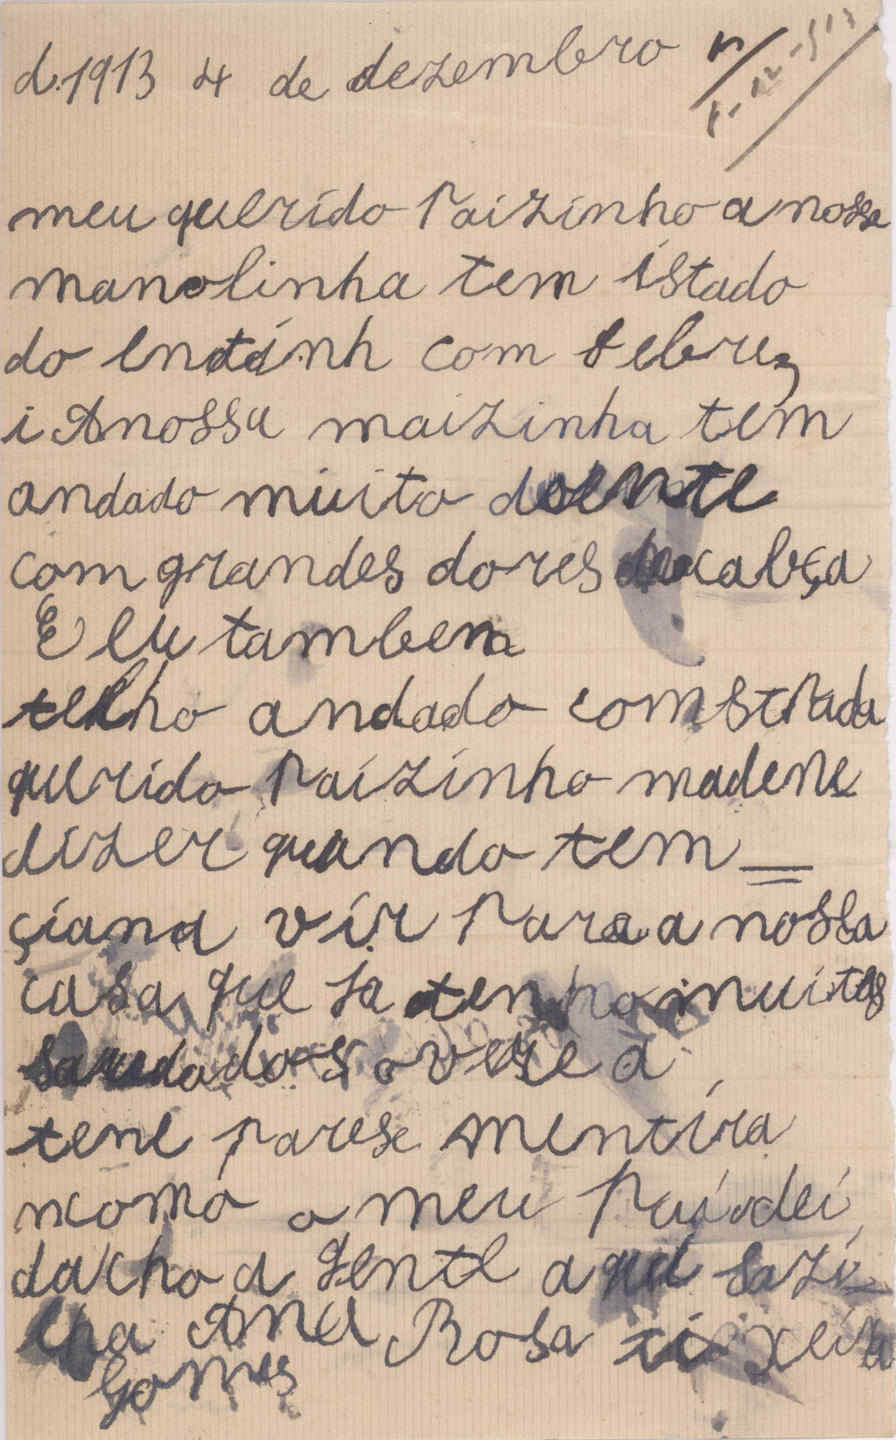 d.1913 4 de dezembro
meu querido Paizinho a nossa
manolinha tem istado
do com febre
i A nossa maizinha tem
andado muito doente
com grandes dores de cabeça
E eu tambem
tenho andado comstipada
querido Paizinho mademe
dizer quando tem
çiana vir Para a nossa
casa que ja tenho muitas
saudados o vere a
tene parese mentira
como o meu Pai dei
dacho a gente aqui sozi
nha Ana Rosa teixeira
Gomes